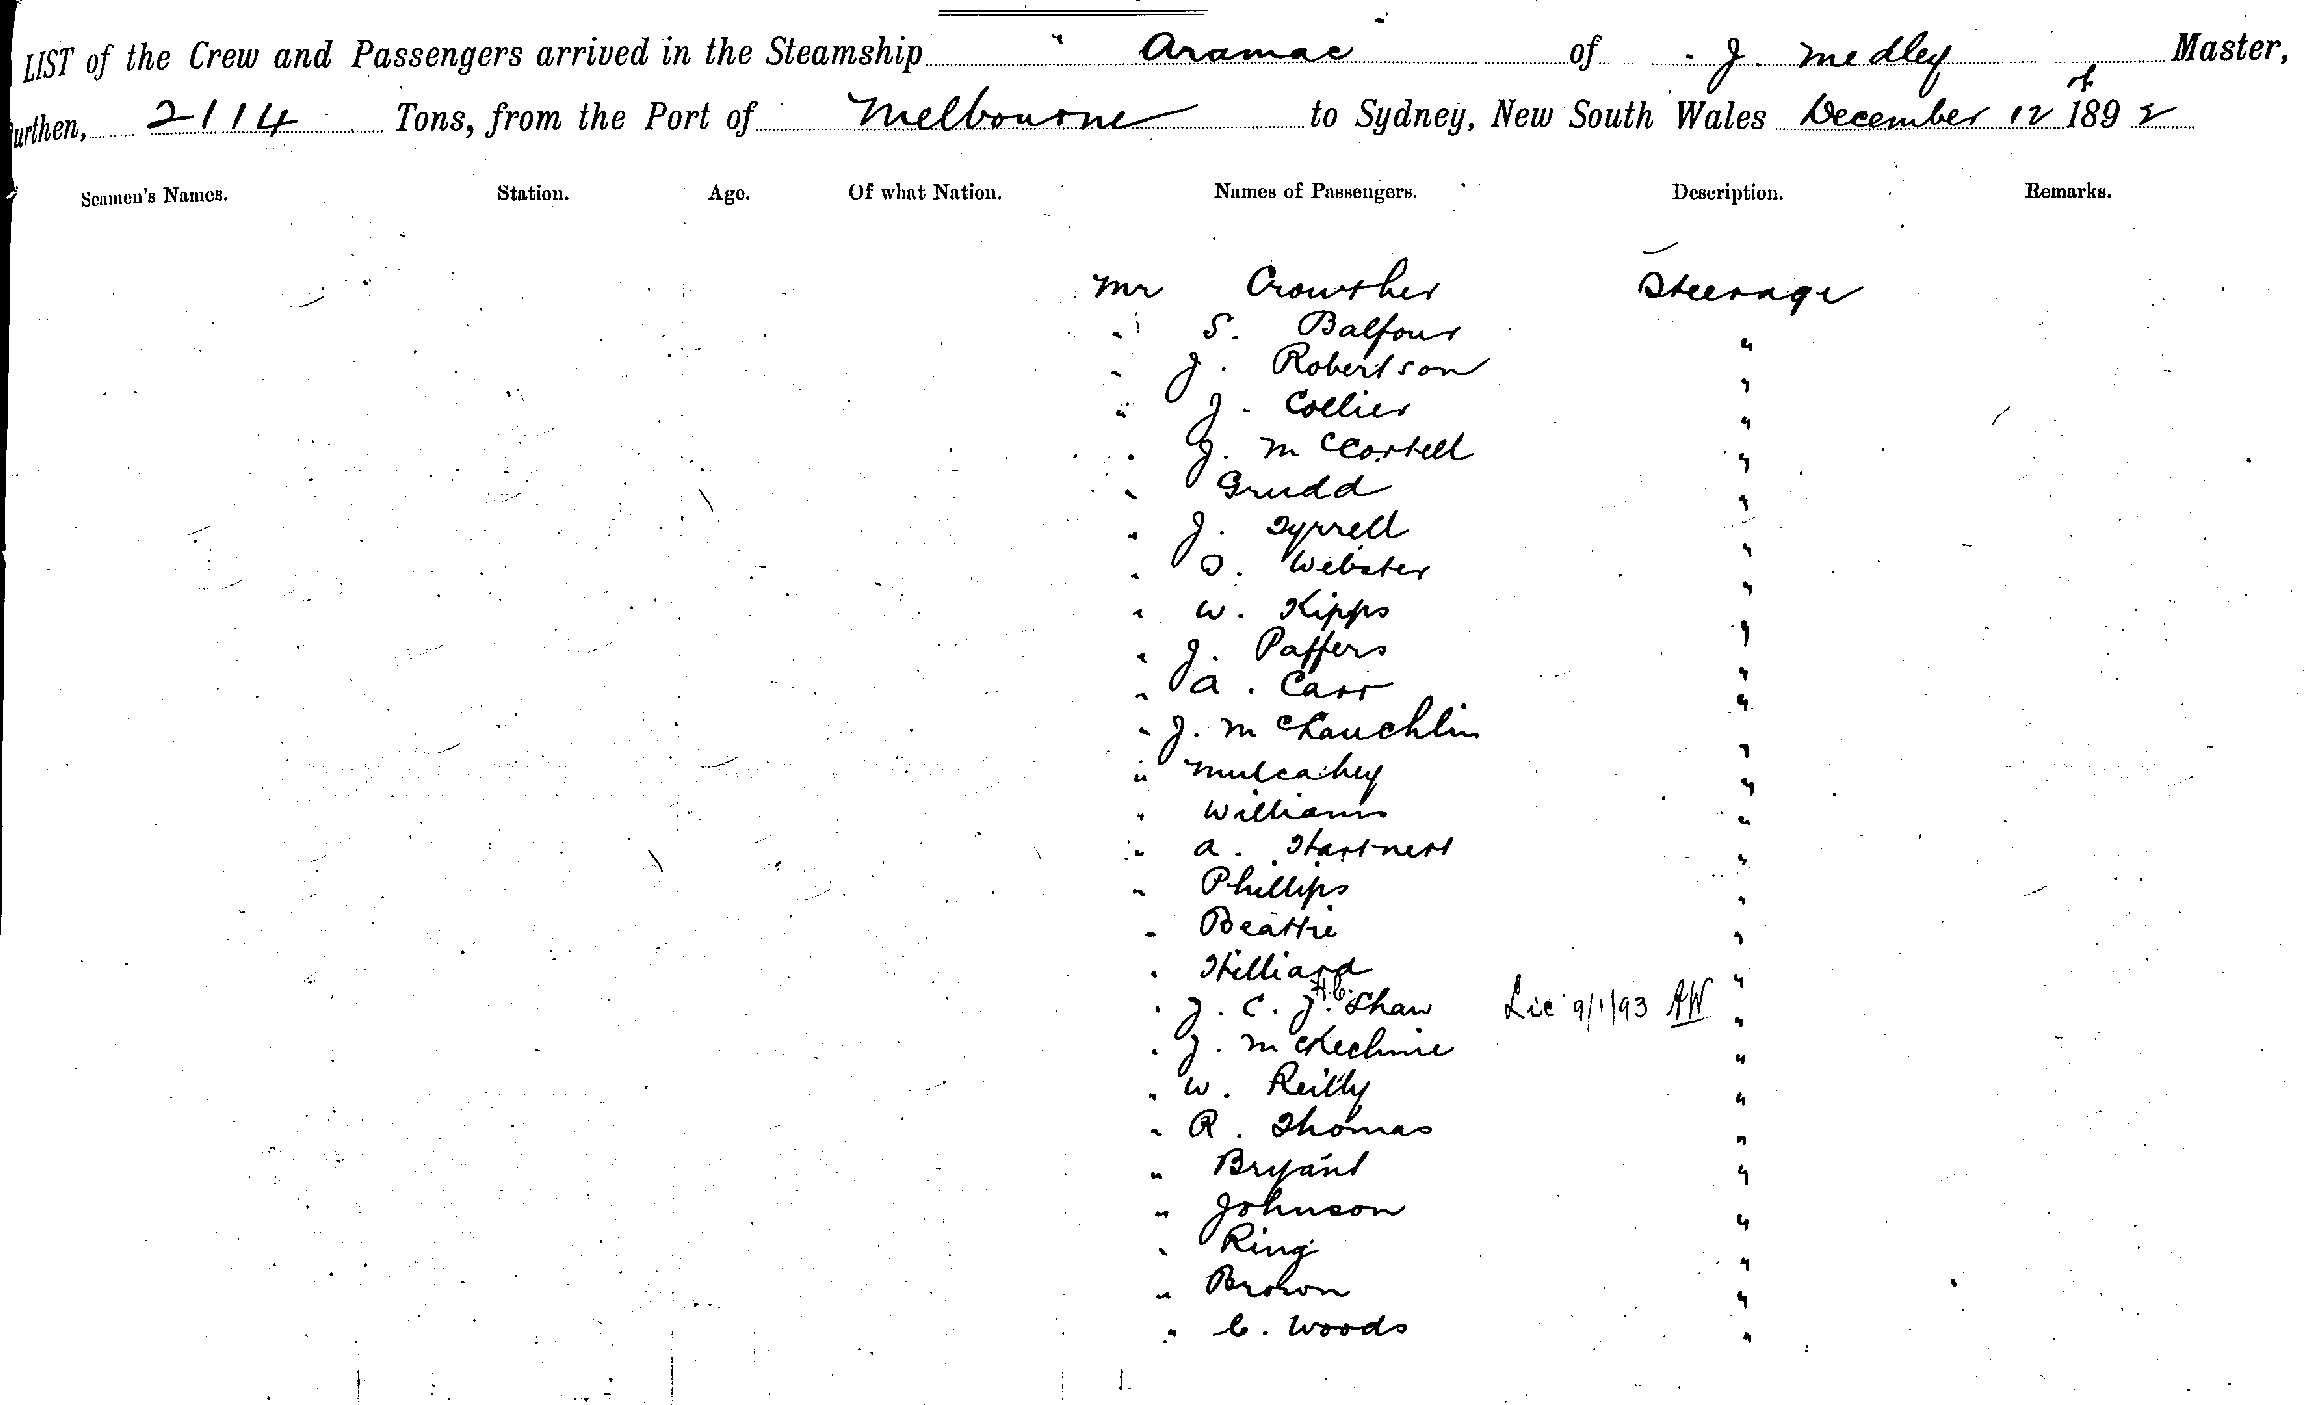 LIST of the Crew and Passengers arrived in the Steamship " Aramac " of J. Medley Master,
urthen, 2114 Tons, from the Port of Melbourne to Sydney, New South Wales December 12th 1892
Seamen's Names. Station. Age. Of what Nation. Names of Passengers. Description. Remarks.
Mr Crowther Steerage
" S. Balfour "
" J. Robertson "
" J. Collier "
" J. McCorkell "
" Grudd "
" J. Tyrrell "
" D. Webster "
" W. Kipps "
" J. Paffers "
" A. Carr "
" J. McLauchlin "
" Mulcahey "
" Williams "
" A. Hartnett "
" Phillips "
" Beattie "
" Hilliard "
" J. C. J. H.C. Shaw Lic 9/1/93 AW "
" J. McKechnie "
" W. Reilly "
" R. Thomas "
" Bryant "
" Johnson "
" Ring "
" Brown "
" C. Woods "